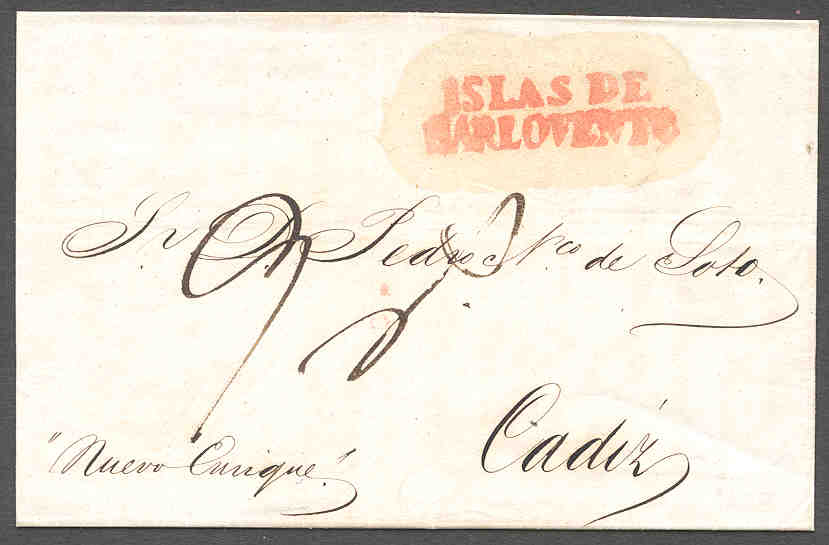 ISLAS DE
BARLOVENTO
Sr Dn Pedro Nco de Soto.
Cadiz
"Nuevo Enrique"